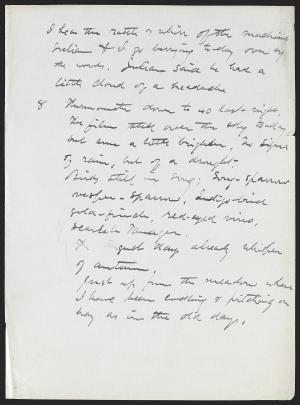 I hear the rattle & whirr of the machine
Julian & I go berrying to-day over by
the woods. Julian said he had a
little cloud of a headache
8 Thermometer down to 40 last night,
The film still over the sky to-day,
but sun a little brighter, no signs
of rain, but of a drought-
Birds still in song; Song-sparrow
vesper-sparrow, Indigo-bird
gold-finch, red-eyed vireo,
scarlet Tanager.
The August days already whisper
of autumn.
Just up from the meadow where
I have been cocking & pitching on
hay as in the old days.